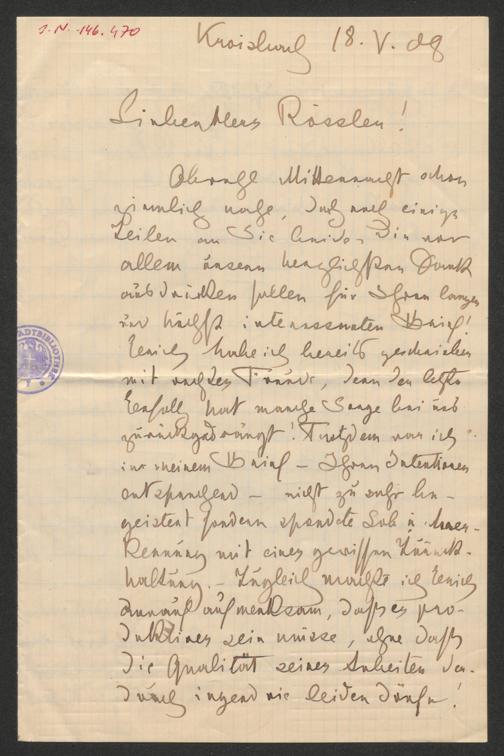 J.N. 146.470
Kroisbach 18. V. 09
Liebes Herr Rössler!
Obwohl Mitternacht schon
ziemlich nahe, doch noch einige
Zeilen an Sie beide, die vor
allem unsern herzlichsten Dank
ausdrücken sollen für Ihren langen
und höchst interessanten Brief!
habe ich bereits geschrieben
mit Freude, denn der letzte
Erfolg hat manche Sorge bei uns
zurückgedrängt! Trotzdem war ich
in meinem Brief – Ihren Intentionen
entsprechend – nicht zu sehr be-
geistert sondern spendete Lob u. Aner-
kennung mit einer gewissen Zurück-
haltung. – Zugleich machte ich
darauf aufmerksam, daß es pro-
duktiver sein müsse, ohne daß
die Qualität seiner Arbeiten da-
durch irgendwie leiden dürfe!
STADTBIBLIOTHEK